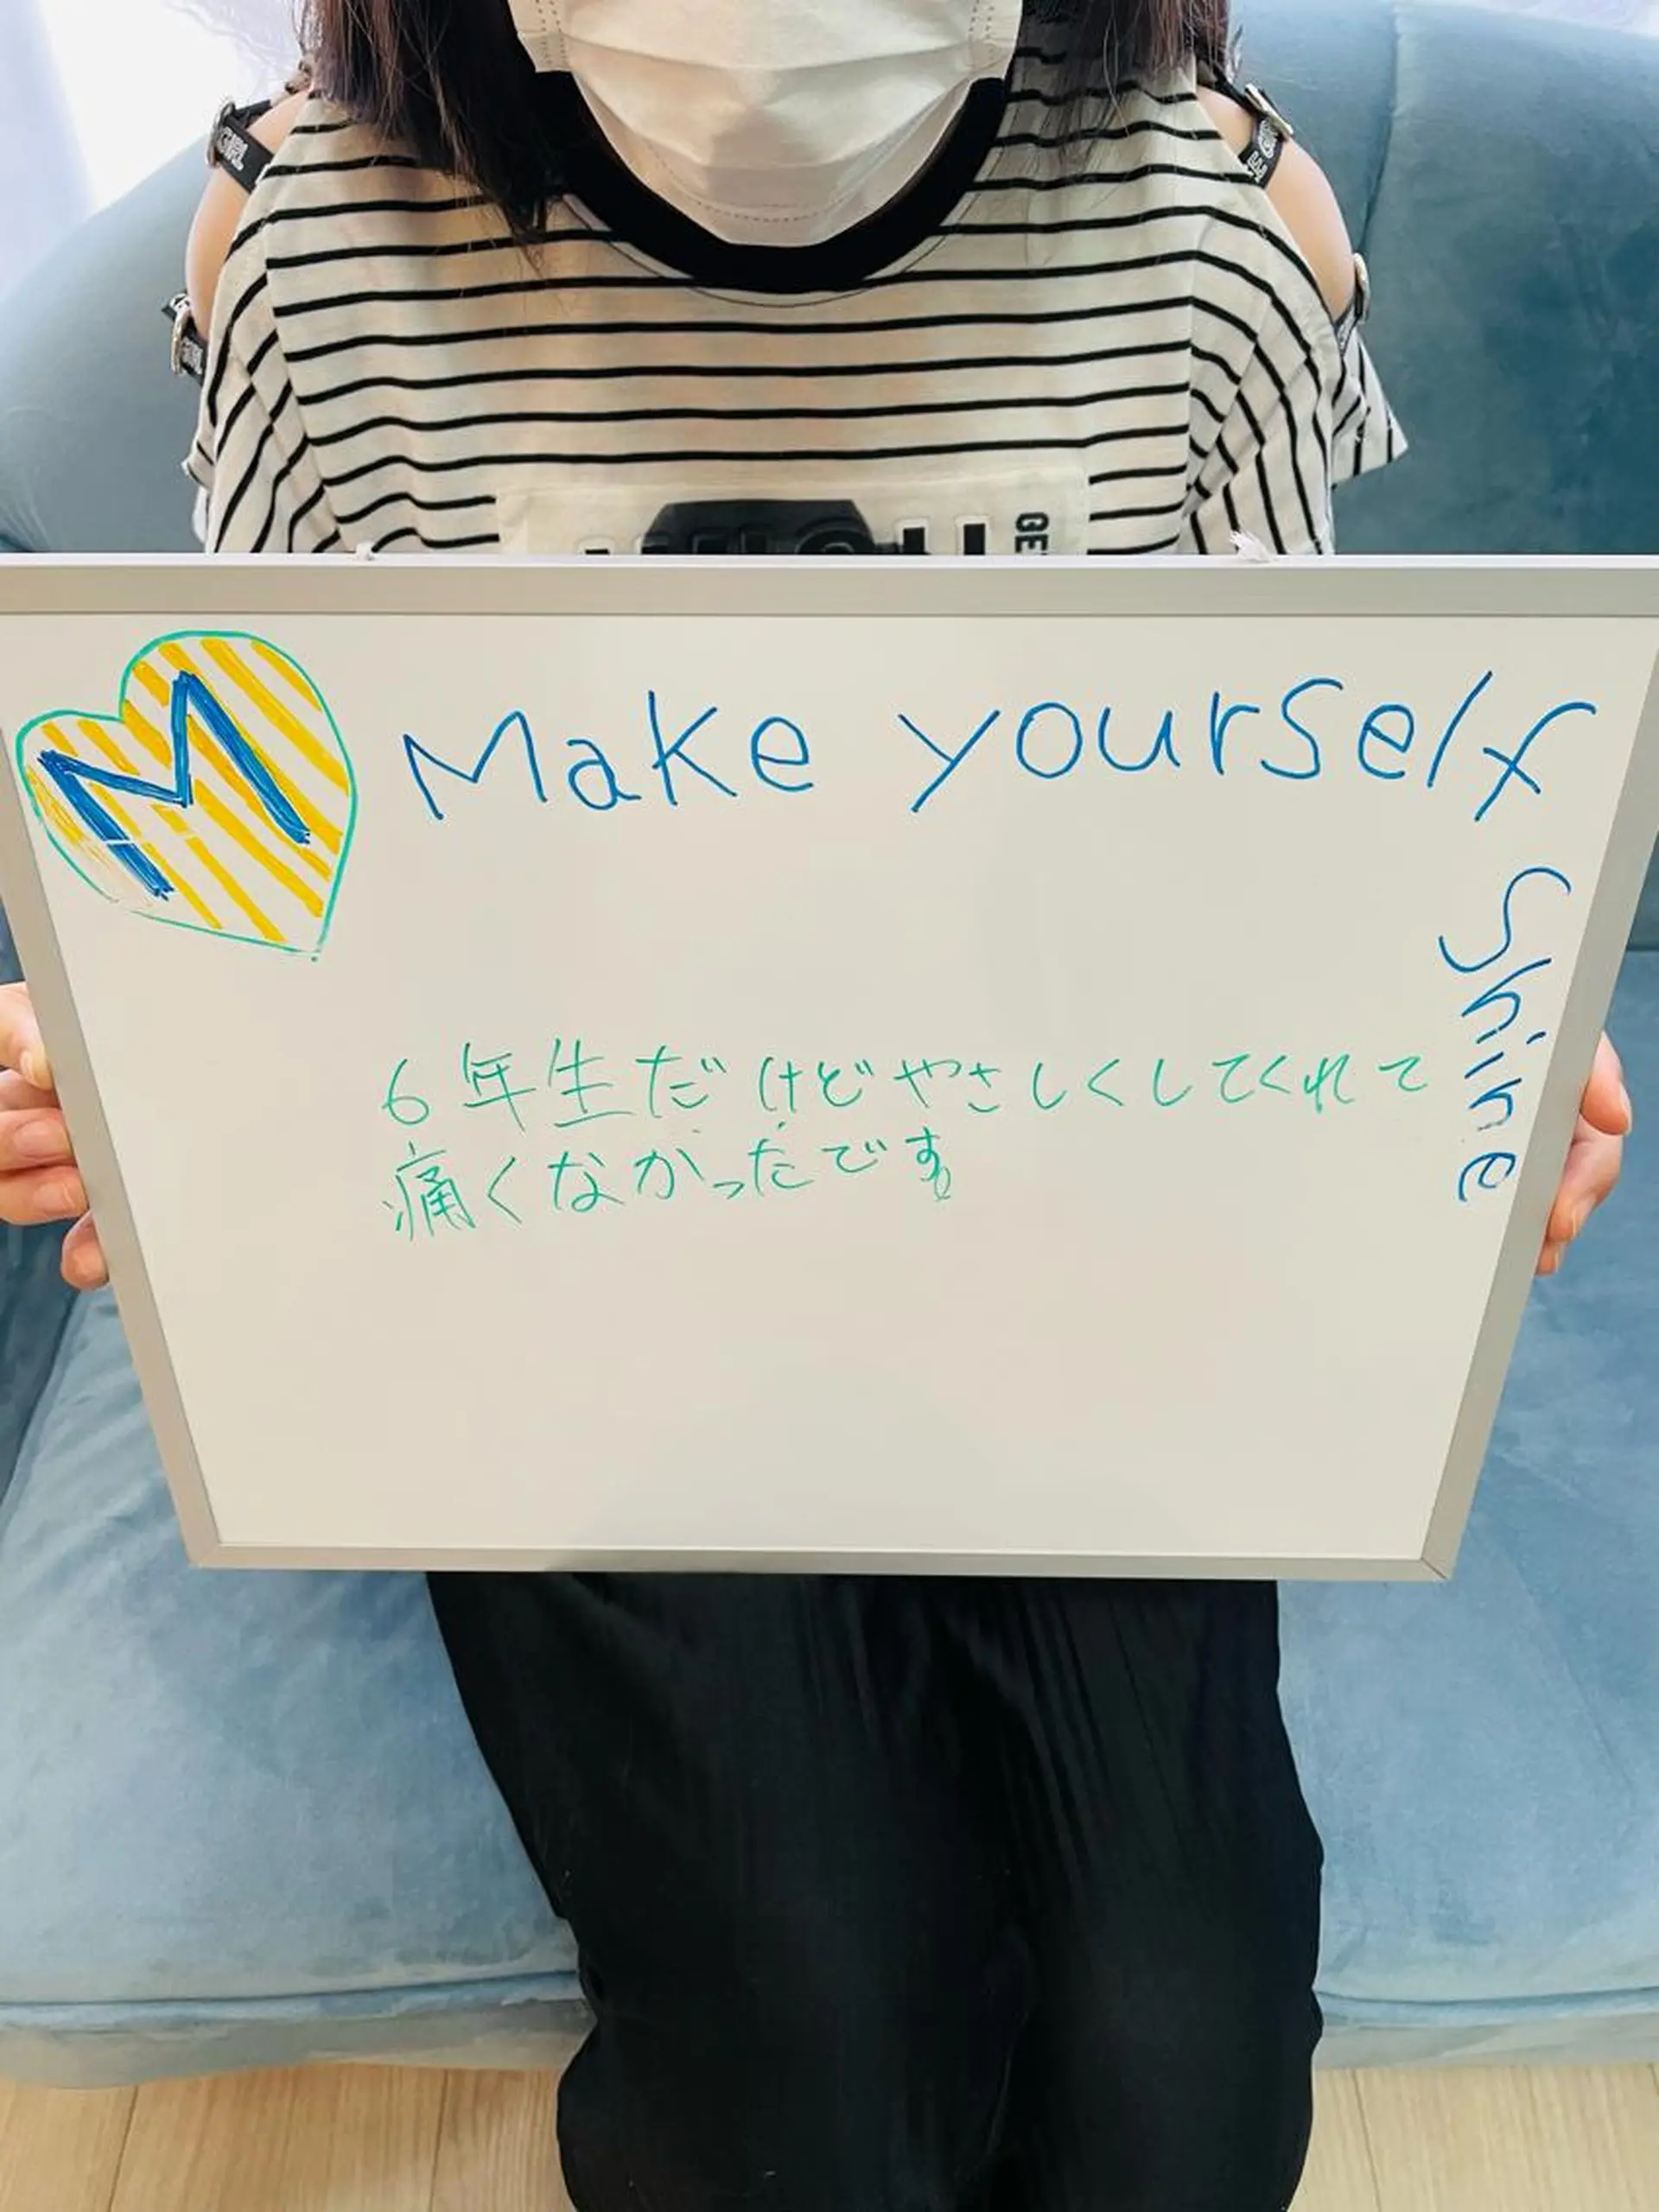 M
Make yourself
Shine
6年生だけどやさしくしてくれて
痛くなかったです
GE